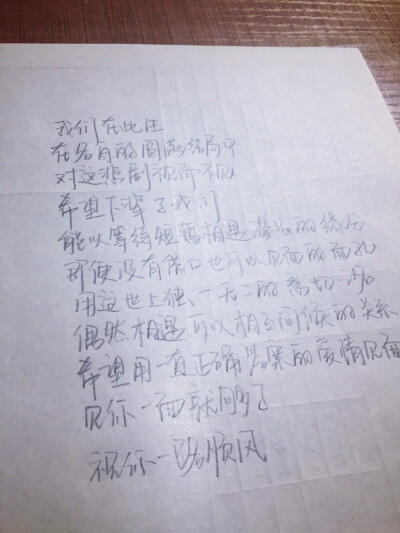 我们在此生
在各自的圆满结局中
对这悲剧视而不见
希望下辈子我们
能以等待短暂相遇漫长的缘份
即使没有借口也可以见面的面孔
用这世上独一无二的亲切
偶然相遇可以相互问候的关系
希望用一直正确答案的爱情见面
见你一面就问多了
祝你一路顺风